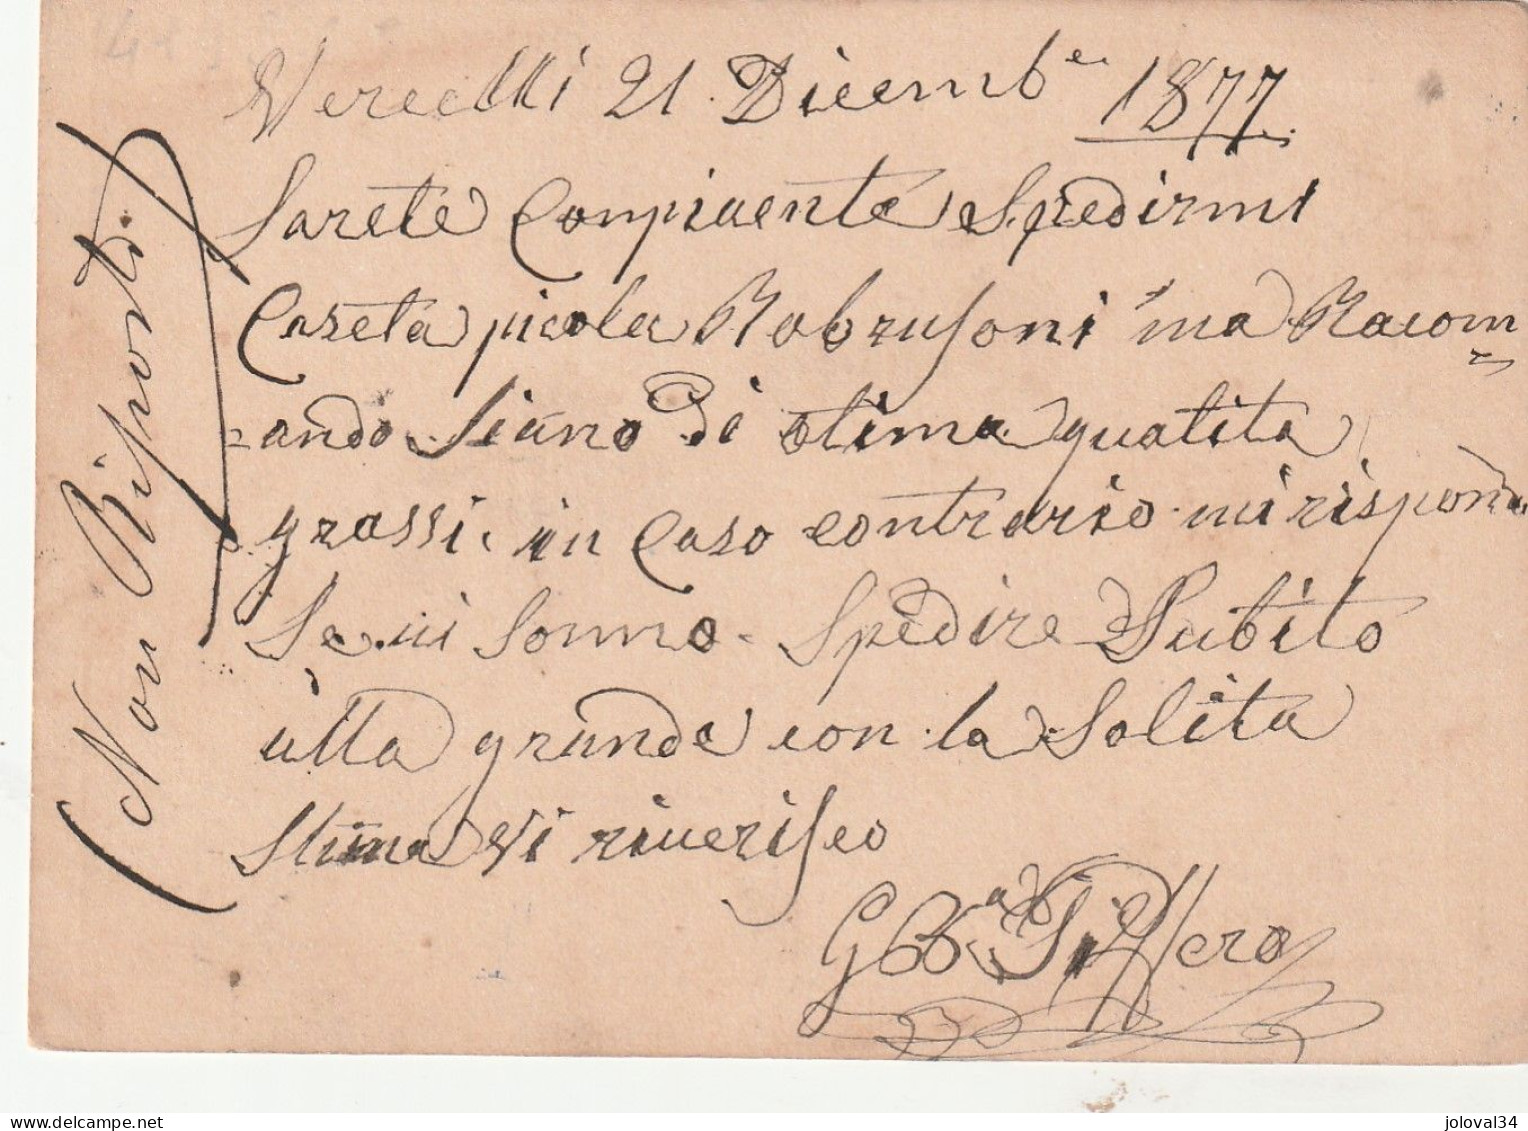 Vercelli 21 Dicemb.e 1877.
Sarete Conpiacente Spedirmi
Caseta picola Rabrusoni ma Racom
ando Siano di otima qualita
grassi. in Caso contrario mi rispond
Se vi sonno Spedire Subito
alla grande con la Solita
Stima Vi riverisco
G. Bta
(Non Risporto)
joloval34